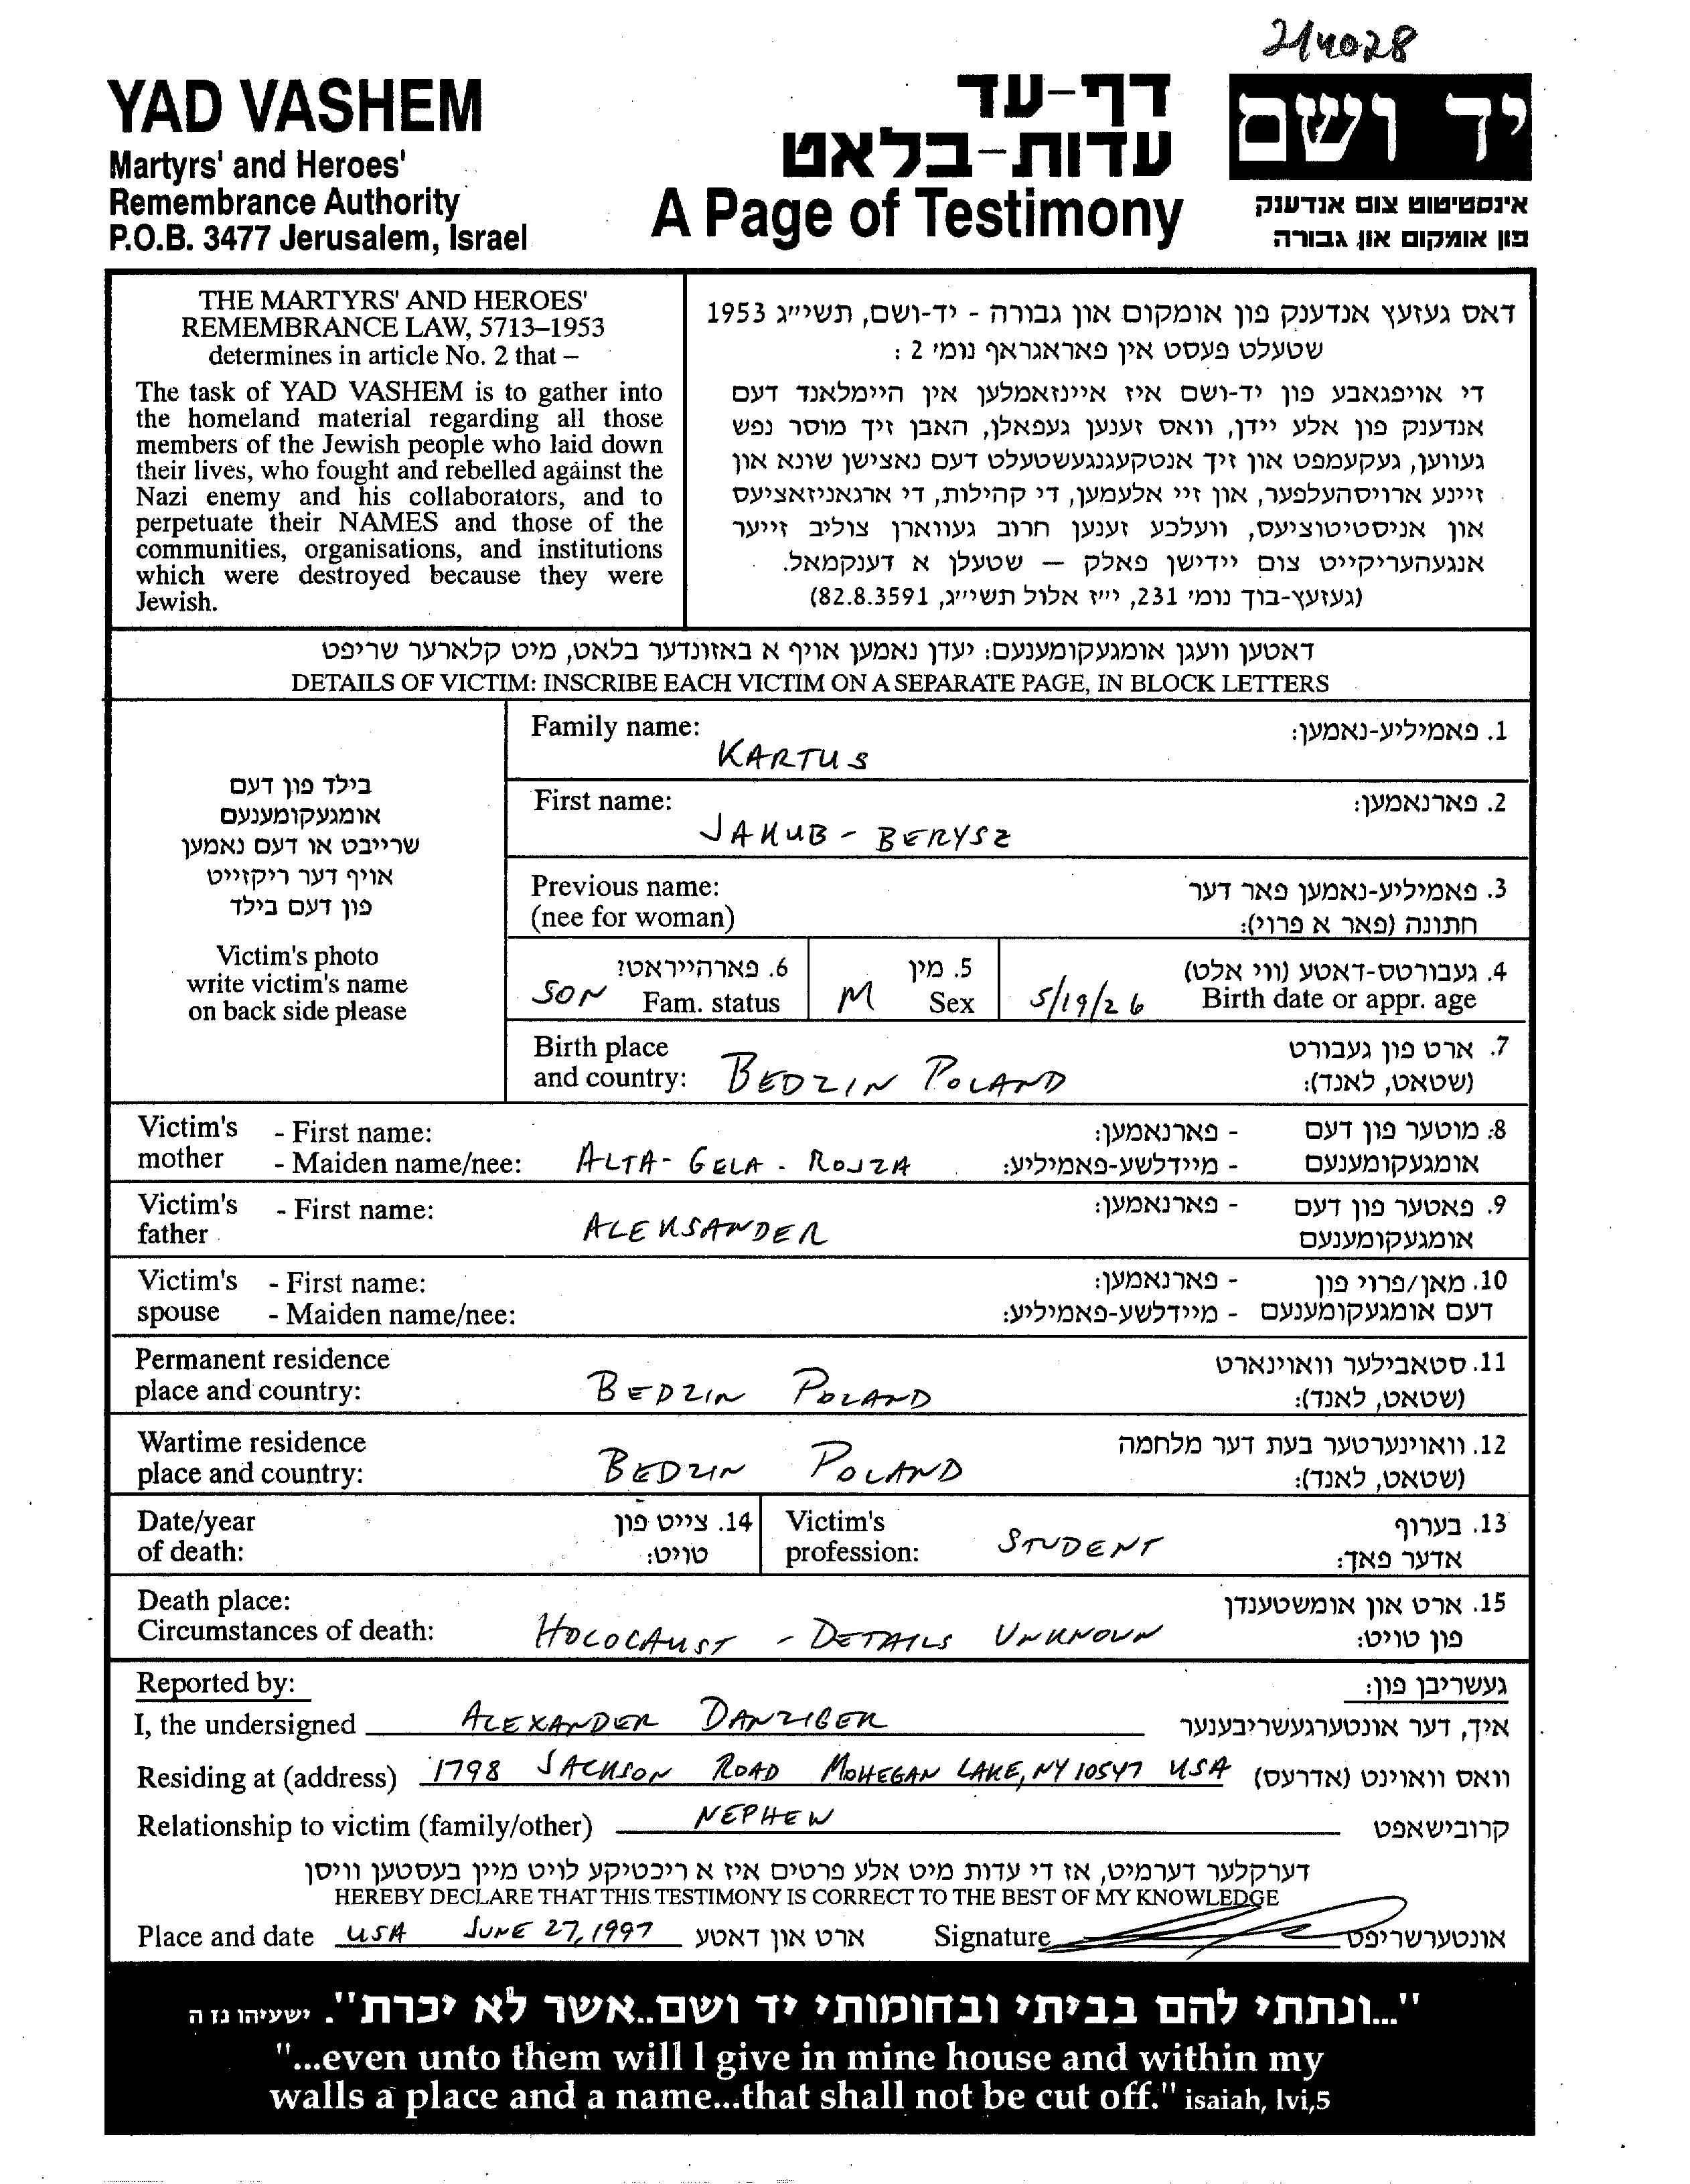 214028
YAD VASHEM
Martyrs' and Heroes'
Remembrance Authority
P.O.B. 3477 Jerusalem, Israel
דף-עד
עדות-בלאט
A Page of Testimony
יד ושם
אינסטיטוט צום אנדענק
פון אומקום און גבורה
THE MARTYRS' AND HEROES'
REMEMBRANCE LAW, 5713–1953
determines in article No. 2 that –
The task of YAD VASHEM is to gather into
the homeland material regarding all those
members of the Jewish people who laid down
their lives, who fought and rebelled against the
Nazi enemy and his collaborators, and to
perpetuate their NAMES and those of the
communities, organisations, and institutions
which were destroyed because they were
Jewish.
דאס געזעץ אנדענק פון אומקום און גבורה - יד-ושם, תשי״ג 1953
שטעלט פעסט אין פאראגראף נומ׳ 2 :
די אויפגאבע פון יד-ושם איז איינזאמלען אין היימלאנד דעם
אנדענק פון אלע יידן, וואס זענען געפאלן, האבן זיך מוסר נפש
געווען, געקעמפט און זיך אנטקעגנגעשטעלט דעם נאצישן שונא און
זיינע ארויסהעלפער, און זיי אלעמען, די קהילות, די ארגאניזאציעס
און אניסטיטוציעס, וועלכע זענען חרוב געווארן צוליב זייער
אנגעהעריקייט צום יידישן פאלק — שטעלן א דענקמאל.
(געזעץ-בוך נומ׳ 231, י״ז אלול תשי״ג, 82.8.3591)
דאטען וועגן אומגעקומענעם: יעדן נאמען אויף א באזונדער בלאט, מיט קלארער שריפט
DETAILS OF VICTIM: INSCRIBE EACH VICTIM ON A SEPARATE PAGE, IN BLOCK LETTERS
בילד פון דעם
אומגעקומענעם
שרייבט או דעם נאמען
אויף דער ריקזייט
פון דעם בילד
Victim's photo
write victim's name
on back side please
Family name: KARTUS 1. פאמיליע-נאמען:
First name: JAKUB - BERYSZ 2. פארנאמען:
Previous name: 3. פאמיליע-נאמען פאר דער
(nee for woman) חתונה (פאר א פרוי):
6. פארהייראט? 5. מין 4. געבורטס-דאטע (ווי אלט)
SON Fam. status M Sex 5/19/26 Birth date or appr. age
Birth place 7. ארט פון געבורט
and country: BEDZIN POLAND (שטאט, לאנד):
Victim's - First name: - פארנאמען: 8. מוטער פון דעם
mother - Maiden name/nee: ALTA - GELA - ROJZA - מיידלשע-פאמיליע: אומגעקומענעם
Victim's - First name: - פארנאמען: 9. פאטער פון דעם
father ALEKSANDER אומגעקומענעם
Victim's - First name: - פארנאמען: 10. מאן/פרוי פון
spouse - Maiden name/nee: - מיידלשע-פאמיליע: דעם אומגעקומענעם
Permanent residence 11. סטאבילער וואוינארט
place and country: BEDZIN POLAND (שטאט, לאנד):
Wartime residence 12. וואוינערטער בעת דער מלחמה
place and country: BEDZIN POLAND (שטאט, לאנד):
Date/year 14. צייט פון Victim's 13. בערוף
of death: טויט: profession: STUDENT אדער פאך:
Death place: 15. ארט און אומשטענדן
Circumstances of death: HOLOCAUST - DETAILS UNKNOWN פון טויט:
Reported by: געשריבן פון:
I, the undersigned ALEXANDER DANZIGER איך, דער אונטערגעשריבענער
Residing at (address) 1798 JACKSON ROAD MOHEGAN LAKE, NY 10547 USA וואס וואוינט (אדרעס)
Relationship to victim (family/other) NEPHEW קרובישאפט
דערקלער דערמיט, אז די עדות מיט אלע פרטים איז א ריכטיקע לויט מיין בעסטען וויסן
HEREBY DECLARE THAT THIS TESTIMONY IS CORRECT TO THE BEST OF MY KNOWLEDGE
Place and date USA JUNE 27, 1997 ארט און דאטע Signature אונטערשריפט
"...ונתתי להם בביתי ובחומותי יד ושם..אשר לא יכרת". ישעיהו נז ה
"...even unto them will I give in mine house and within my
walls a place and a name...that shall not be cut off." isaiah, lvi,5